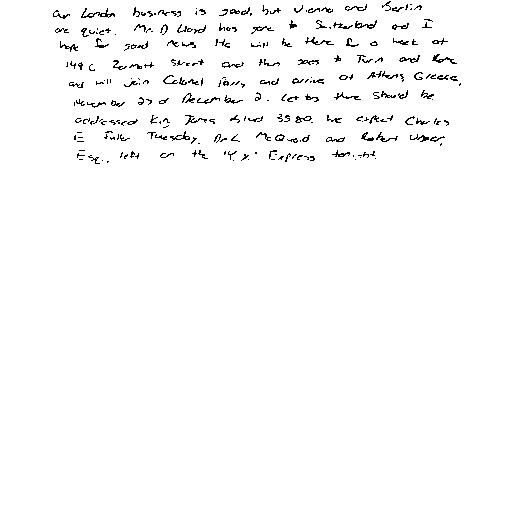 Our London business is good, but Vienna and Berlin
are quiet. Mr. D Lloyd has gone to Switzerland and I
hope for good news. He will be there for a week at
1496 Zermott Street and then goes to Turin and Rome
and will join Colonel Parry and arrive at Athens, Greece,
November 27 or December 2. Letters there should be
addressed King James Blvd 3580. We expect Charles
E Fuller Tuesday. Dr L McQuaid and Robert Unger,
Esq., left on the "Y.X." Express tonight.